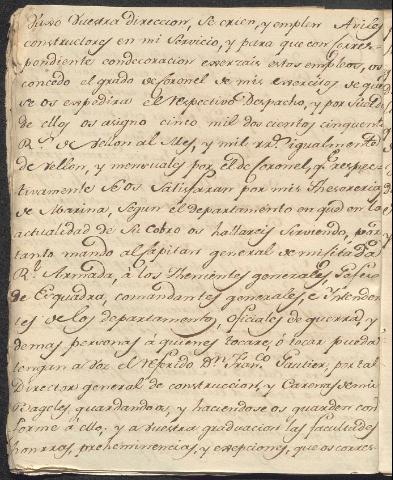 vaxo vuestra direccion, se crien, y empleen Aviles
constructores en mi Servicio, y para que con corres-
pondiente condecoracion exerzais estos empleos, os
concedo el grado de Coronel de mis exercitos de que
se os expedirá el respectivo Despacho, y por sueldo
de ellos os asigno cinco mil doscientos cinquenta
R.s de Vellon al Mes, y mil rr.s igualmente
de vellon, y mensuales por el de Coronel, q.e respec-
tivamente se os Satisfarán por mis Thesorerias
de Marina, segun el departamento en que en la
actualidad de su cobro os hallareis sirviendo, por
tanto mando al Capitan general de mi
R.l Armada, à los Thenientes generales, Gefes
de Esquadra, comandantes generales, e Intenden-
tes de los departamentos, oficiales de guerra, y
demas personas à quienes tocare, ò tocar pueda
tengan a Vos el referido D.n Fran.co Gautier, por tal
Director general de construccion, y Carenas de mis
Bageles, guardandoos, y haciendose os guarden con
forme à ello, y a vuestra graduacion las facultades
honrras, preheminencias, y exepciones, que os corres-